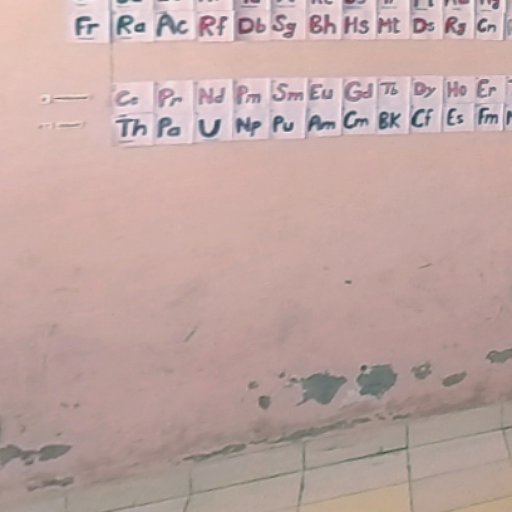 Fr Ra Ac Rf Db Sg Bh Hs Mt Ds Rg Cn
Ce Pr Nd Pm Sm Eu Gd Tb Dy Ho Er
Th Pa U Np Pu Am Cm BK Cf Es Fm